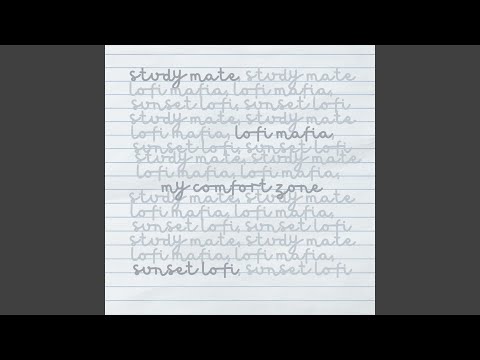 study mate, study mate
lofi mafia, lofi mafia,
sunset lofi, sunset lofi
study mate, study mate
lofi mafia, lofi mafia,
sunset lofi, sunset lofi
study mate, study mate
lofi mafia, lofi mafia,
my comfort zone
study mate, study mate
lofi mafia, lofi mafia,
sunset lofi, sunset lofi
study mate, study mate
lofi mafia, lofi mafia,
sunset lofi, sunset lofi